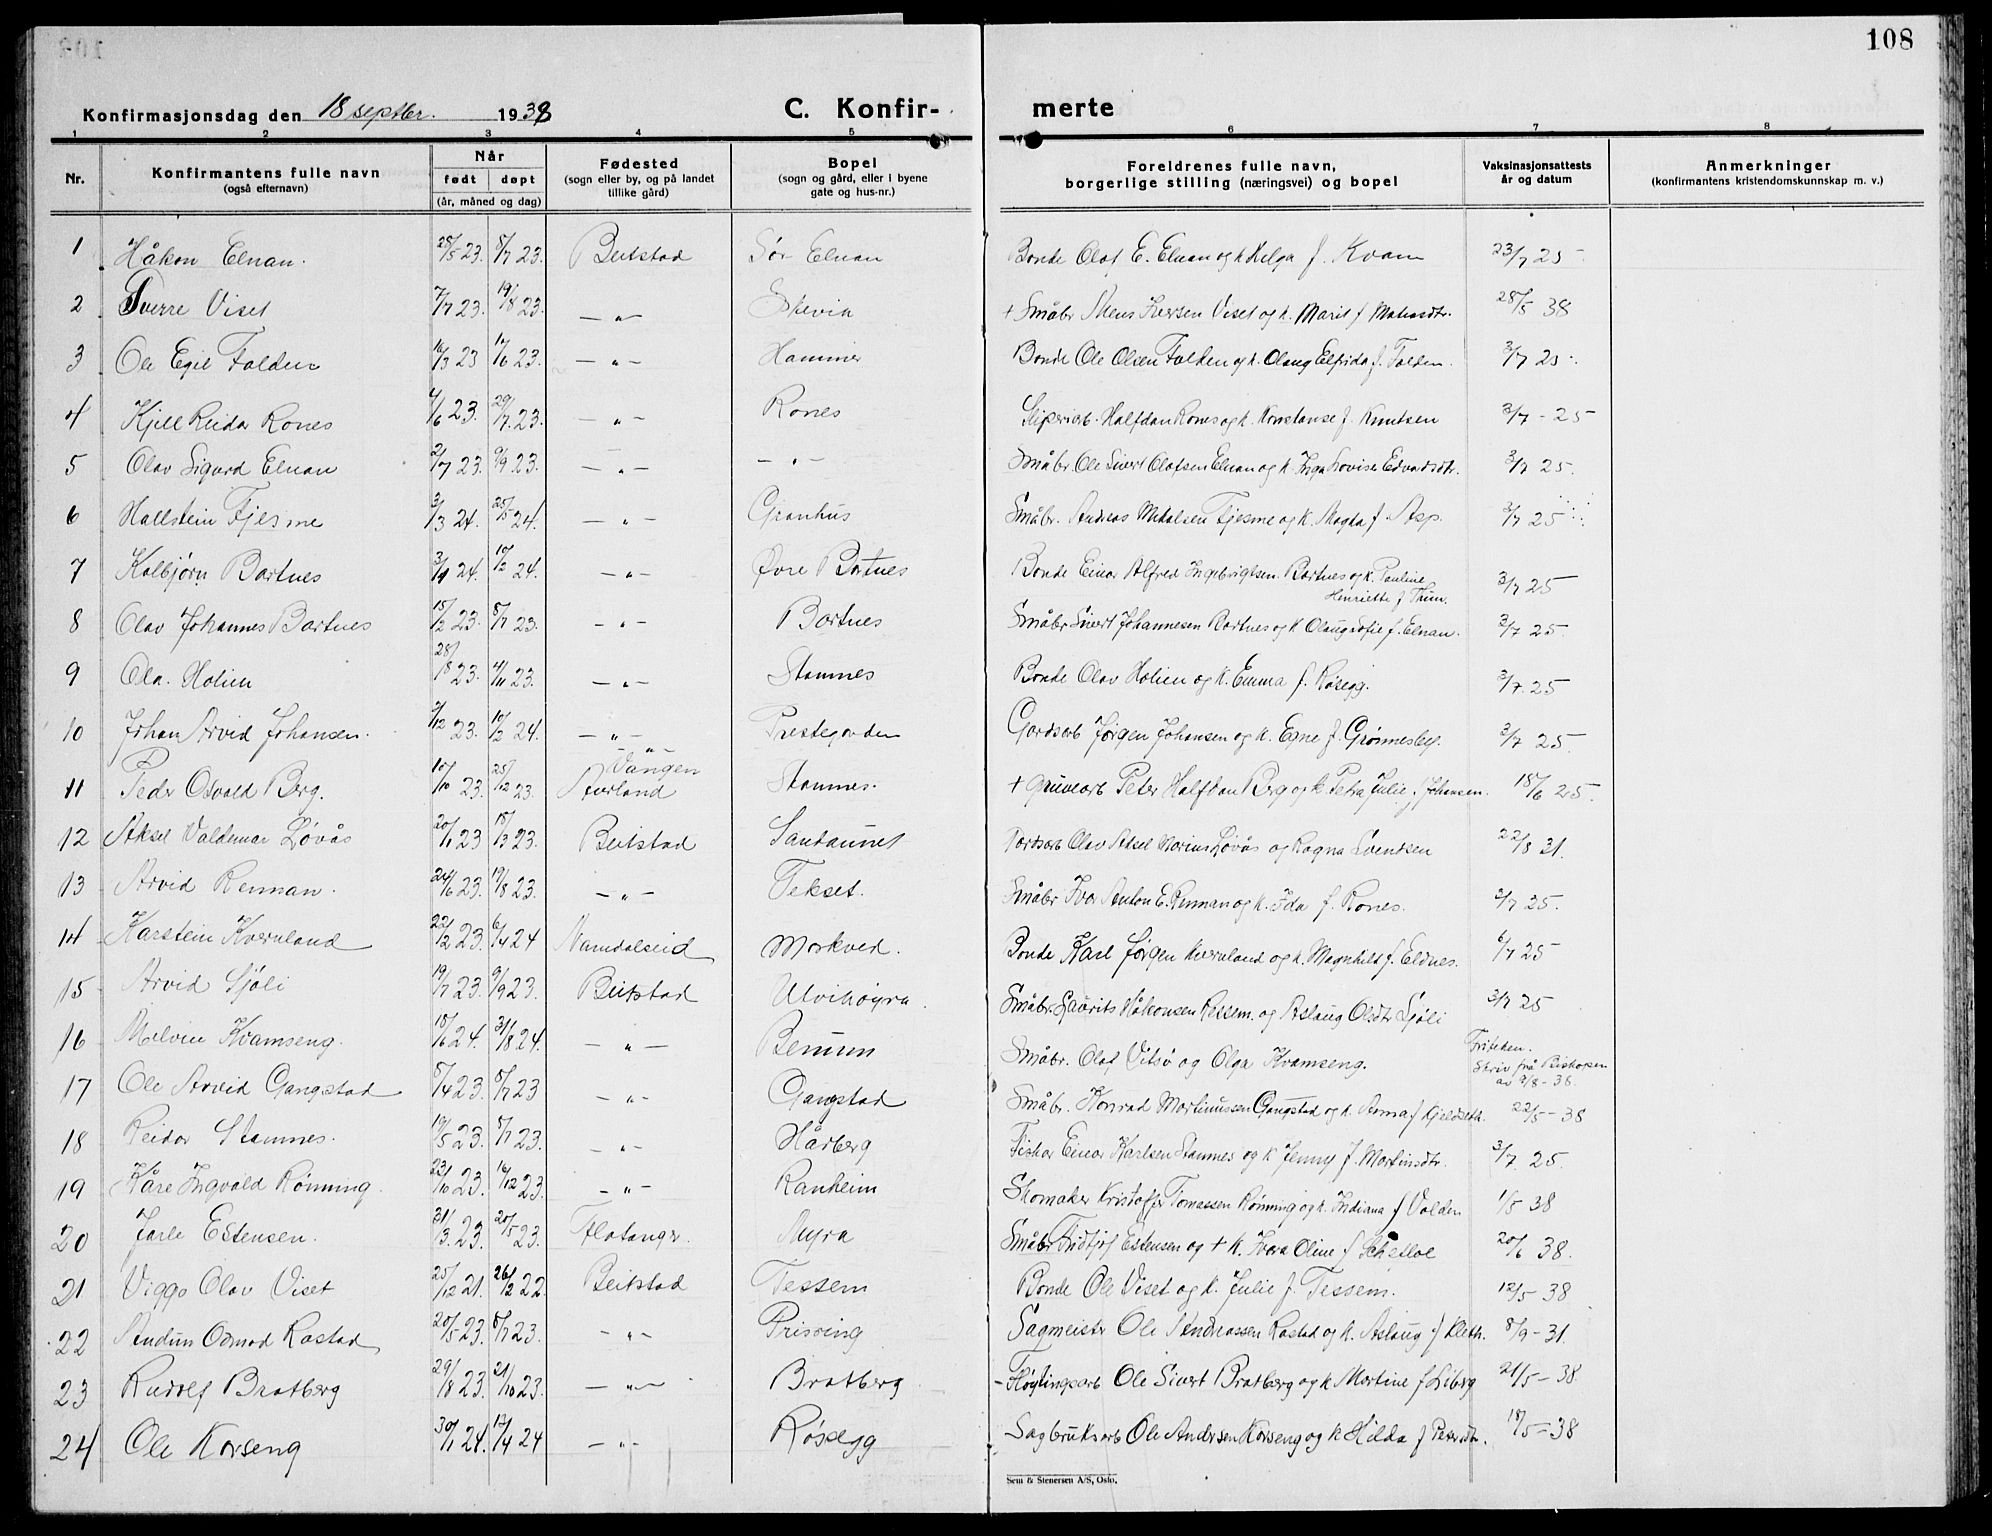 108
Konfirmasjonsdag den 18 septbr. 1938
C. Konfir-
merte
1 2 3 4 5 6 7 8
Nr.
Konfirmantens fulle navn
(også efternavn)
Når
født døpt
(år, måned og dag)
Fødested
(sogn eller by, og på landet
tillike gård)
Bopel
(sogn og gård, eller i byene
gate og hus-nr.)
Foreldrenes fulle navn,
borgerlige stilling (næringsvei) og bopel
Vaksinasjonsattests
år og datum
Anmerkninger
(konfirmantens kristendomskunnskap m. v.)
1 Håkon Elnan. 28/5 23. 8/7 23. Beitstad Sør Elnan Bonde Olaf E. Elnan og k Helga f. Kvam 23/7 25
2 Sverre Viset 7/7 23. 19/8 23. — " — Skevik + Småbr Mens Iversen Viset og k. Marit f 28/5 38
3 Ole Egil Folden 16/3 23 17/6 23. — " — Hammer Bonde Ole Olsen Folden og k. Olaug Elfrida f. Folden. 3/7 25.
4 Kjell Reidar Rones 4/6 23. 29/7. 23. — " — Rones Sliperiarb. Halfdan Rones og k. Konstanse f. Knutsen 3/7 - 25
5 Olav Sigurd Elnan 2/7 23. 9/9 23. — " — — " — Småbr. Ole Sivert Olafsen Elnan og k. Inga Lovise Edvardsdtr. 3/7 25.
6 Hallstein Fjesme 3/3 24. 25/5 24. — " — Granhus Småbr. Andreas Fjesme og k. Magda f. Asp. 3/7 25
7 Kolbjørn Bartnes 24. 10/2 24. — " — Øvre Bartnes Bonde Einar Alfred Ingebrigtsen Bartnes og k. Pauline
Henriette f Thun. 3/7 25
8 Olav Johannes Bartnes 15/2 23. 8/7 23. — " — Bartnes Småbr Sivert Johannesen Bartnes og k Olaug Sofie f. Elnan. 3/7 25.
9 Ola. Holien 28/8 23. 4/11 23. — " — Stamnes Bonde Olav Holien og k. Emma f. Røsegg. 3/7. 25
10 Johan Arvid Johansen. 3/12 23. 10/2 24. — " — Prestegarden Gardsarb Jørgen Johansen og k. Egne f. Grønnesby. 3/7 25.
— " —
11 Peder Osvald Berg. 10/10 23. 25/12 23. Vangen
Aurland Stamnes. + Gruvearb Peter Halfdan Berg og k Petra Julie f Johansen. 18/6 25.
12 Aksel Valdemar Løvås 20/1 23 18/3 23. Beitstad Santaunet Olav Aksel Marius Løvås og Ragna Svendsen 22/8 31.
13 Arvid Renman. 24/6 23. 19/8 23. — " — Tekset. Småbr Ivar Anton E. Renman og k. Ida f. Rones. 3/7 25.
14 Karstein Kvernland 22/12 23. 6/4 24 Namdalseid Morkved. Bonde Karl Jørgen Kvernland og k. Magnhild f. Eldnes. 6/7 25
15 Arvid Sjøli 19/7 23. 9/9 23. Beitstad Utvikøyra. Småbr. Laurits Håkonsen Ressem. og Aslaug Olsdtr Sjøli 3/7 25
16 Melvin Kvamseng. 18/6 24. 31/8 24. — " — Benum Småbr. Olaf Vitsø og Olga Kvamseng. Friteken.
Skriv frå Biskopen
av 9/8 - 38.
17 Ole Arvid Gangstad 8/4 23. 8/7 23 — " — Gangstad Småbr. Konrad Martinussen Gangstad og k. Anna f Kjeldseth. 22/5 - 38
18 Reidar Stamnes. 19/5 23. 8/7 23. — " — Hårberg Fiskar Einar Karlsen Stamnes og k Jenny f. Martinsdtr. 3/7. 25.
19 Kåre Ingvald Rønning. 23/10 23. 16/12 23. — " — Ranheim Skomaker Kristoffer Tomassen Rønning og k. Indiana f Volden 1/5 38
20 Jarle Estensen. 31/3. 23. 20/5 23. Flatanger. Myra Småbr Fridtjof Estensen og + k. Ivara Oline f 20/6 38.
21 Viggo Olav Viset 25/12 21. 26/2 22 Beitstad Tessem Bonde Ole Viset og k. Julie f. Tessem. 12/5 - 38
22 Audun Odmod Rostad 20/5 23. 8/7 23. — " — Prisving Sagmeister Ole Andreassen Rostad og k. Aslaug f Kleth. 8/9 - 31.
23 Rudolf Bratberg 29/8 23. 21/10 23. — " — Bratberg - Fløytingsarb Ole Sivert Bratberg og k Martine f Liberg 21/5 - 38
24 Ole Korseng 30/1 24. 17/4 24 — " — Røsegg Sagbruksarb Ole Andersen Korseng og k Hilda f Petersdtr. 18/5 - 38
Sem & Stenersen A/S, Oslo.